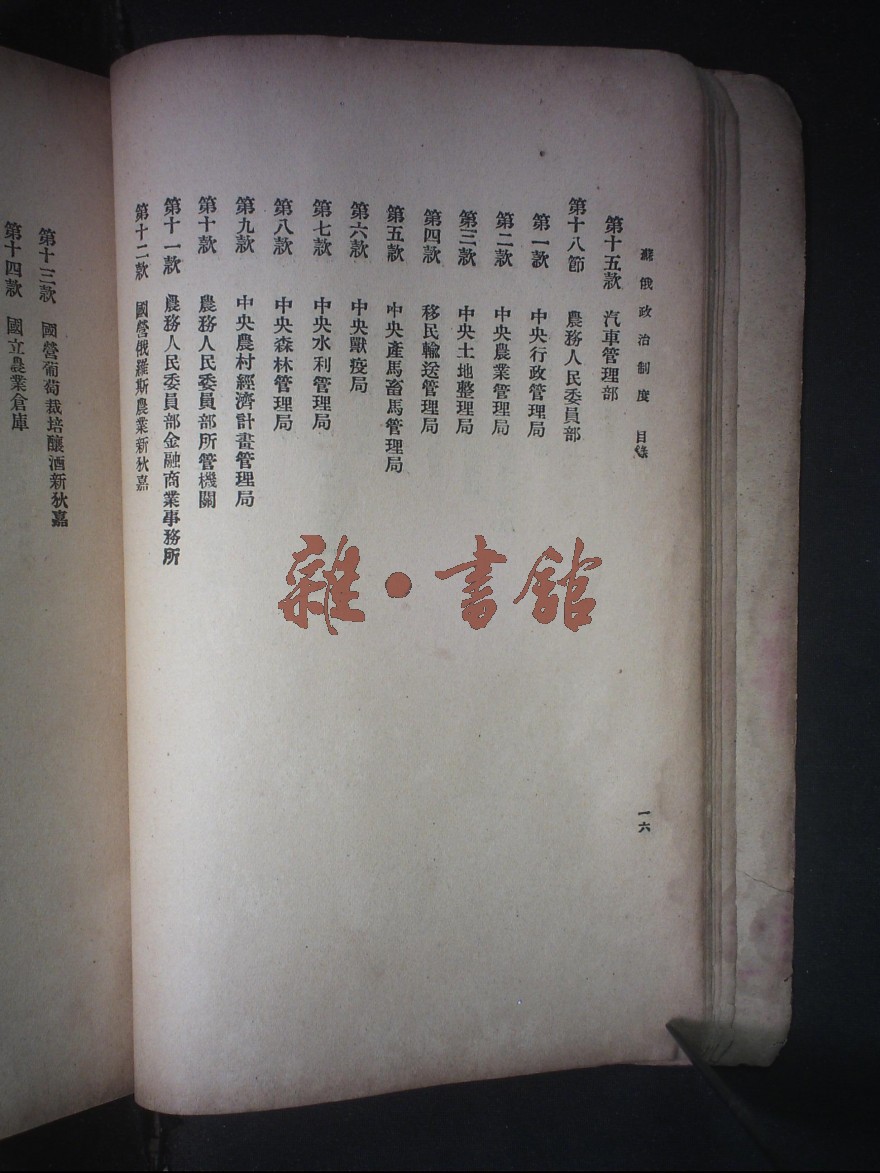 蘇俄政治制度 目錄
第十五款 汽車管理部
第十八節 農務人民委員部
第一款 中央行政管理局
第二款 中央農業管理局
第三款 中央土地整理局
第四款 移民輸送管理局
第五款 中央產馬畜馬管理局
第六款 中央獸疫局
第七款 中央水利管理局
第八款 中央森林管理局
第九款 中央農村經濟計畫管理局
第十款 農務人民委員部所管機關
第十一款 農務人民委員部金融商業事務所
第十二款 國營俄羅斯農業新狄嘉
一六
第十三款 國營葡萄栽培釀酒新狄嘉
第十四款 國立農業倉庫
雜·書館